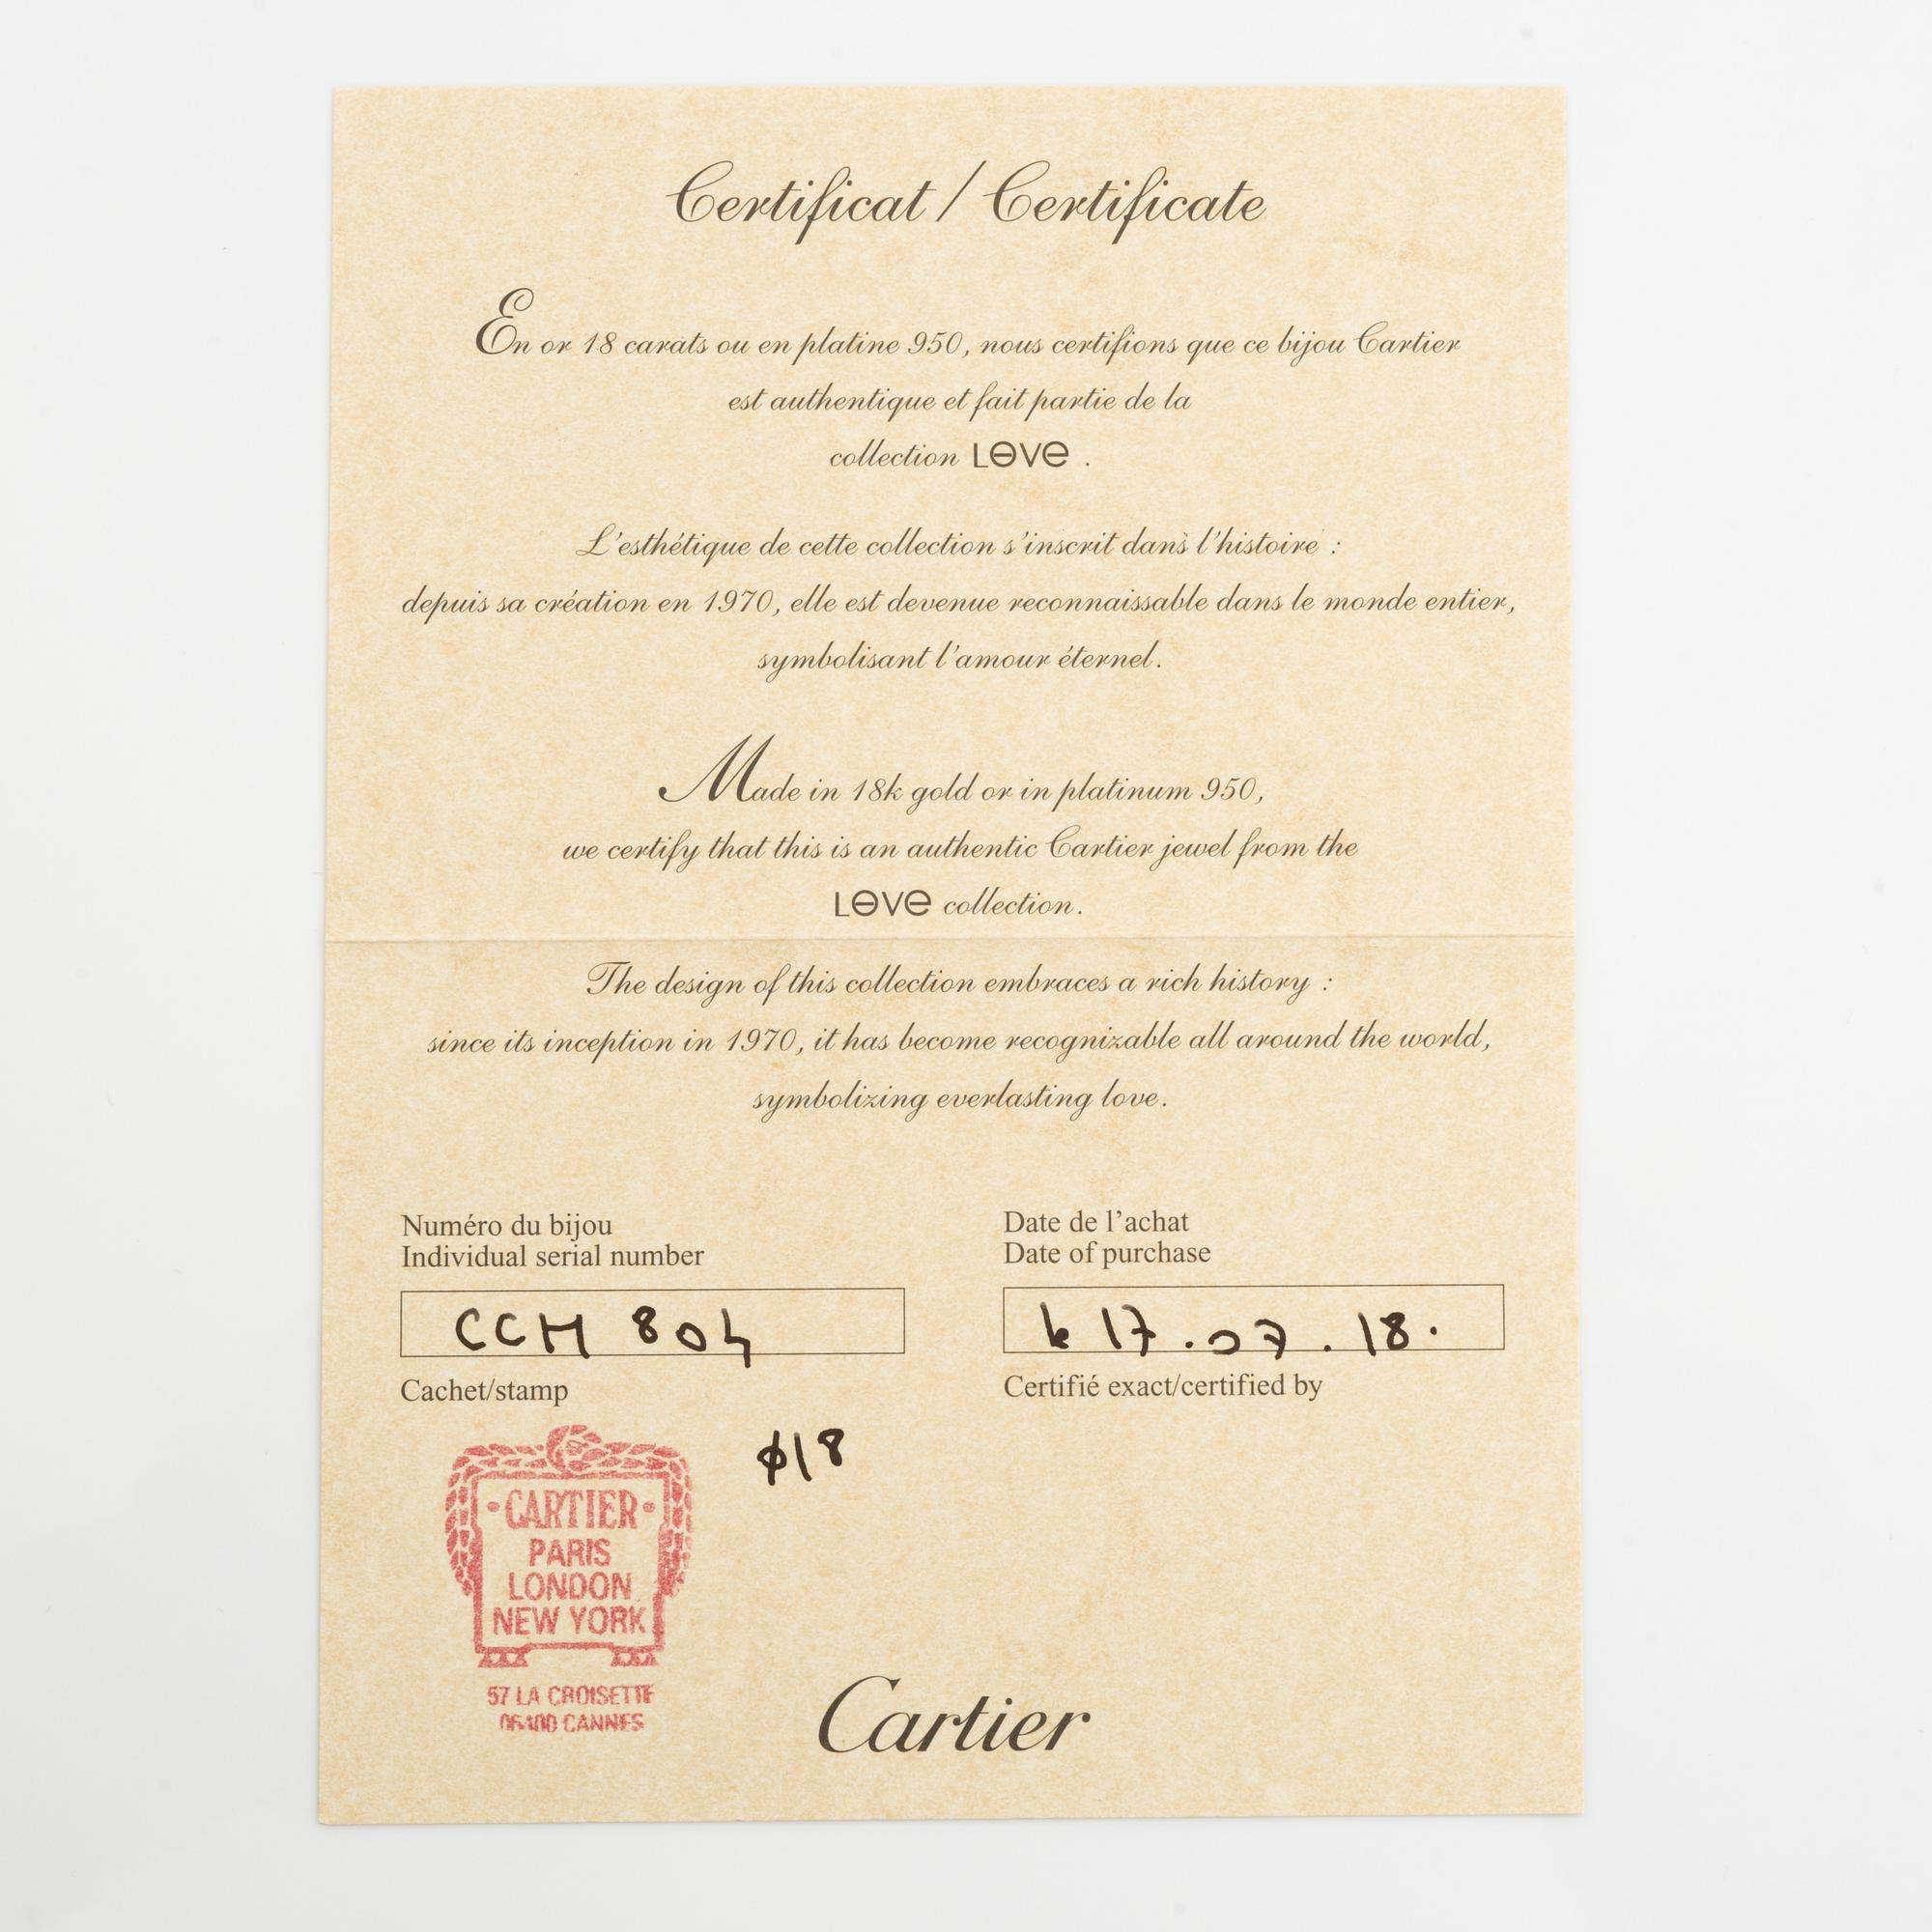 Certificat / Certificate
En or 18 carats ou en platine 950, nous certifions que ce bijou Cartier
est authentique et fait partie de la
collection LOVE .
L'esthétique de cette collection s'inscrit dans l'histoire :
depuis sa création en 1970, elle est devenue reconnaissable dans le monde entier,
symbolisant l'amour éternel.
Made in 18k gold or in platinum 950,
we certify that this is an authentic Cartier jewel from the
LOVE collection.
The design of this collection embraces a rich history :
since its inception in 1970, it has become recognizable all around the world,
symbolizing everlasting love.
Numéro du bijou
Individual serial number
CCH 804
Date de l'achat
Date of purchase
le 17.07.18.
Cachet/stamp
Certifié exact/certified by
ϕ18
CARTIER
PARIS
LONDON
NEW YORK
57 LA CROISETTE
06400 CANNES
Cartier